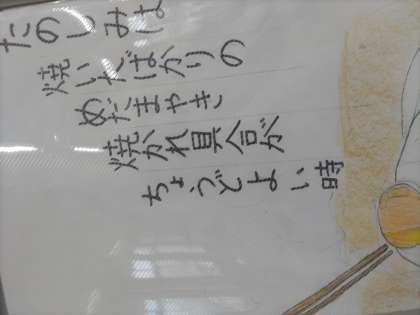 たのしみは
焼いたばかりの
めだまやき
焼かれ具合が
ちょうどよい時